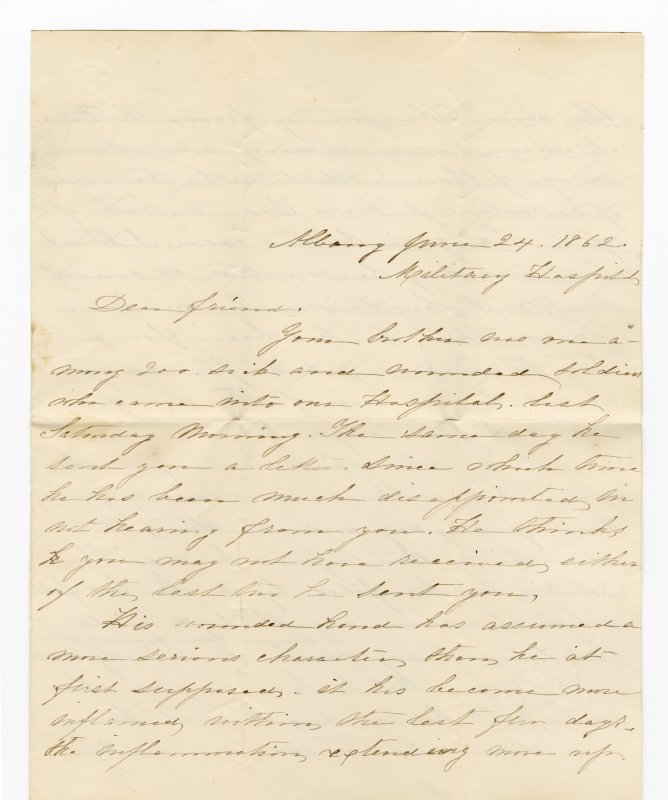 Albany June 24. 1862.
Military Hospital,
Dear friend.
Your brother was one a-
mong 200. sick and wounded, soldiers
who came into our Hospital. last,
Saturday Morning. The same day he
sent you a letter. since which time
he has been much disappointed, in
not hearing from you. He thinks
you may not have received, either
of the, last two he sent you,
His wounded hand has assumed a
more serious character, then, he at
first supposed. it has become more
inflamed, within, the last few days.
the inflammation, extending more up,